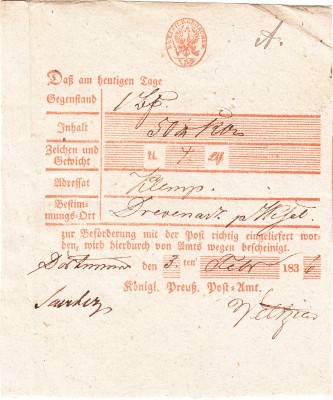 A.
Daß am heutigen Tage
Gegenstand 1 Bf
Inhalt
Zeichen und Gewicht u.
Adressat Klemp.
Bestimmungs-Ort Drevenack p Wesel.
zur Beförderung mit der Post richtig eingeliefert wor-
den, wird hierdurch von Amts wegen bescheinigt.
Dortmund den 3. ten Febr 1836
Königl. Preuß. Post-Amt.